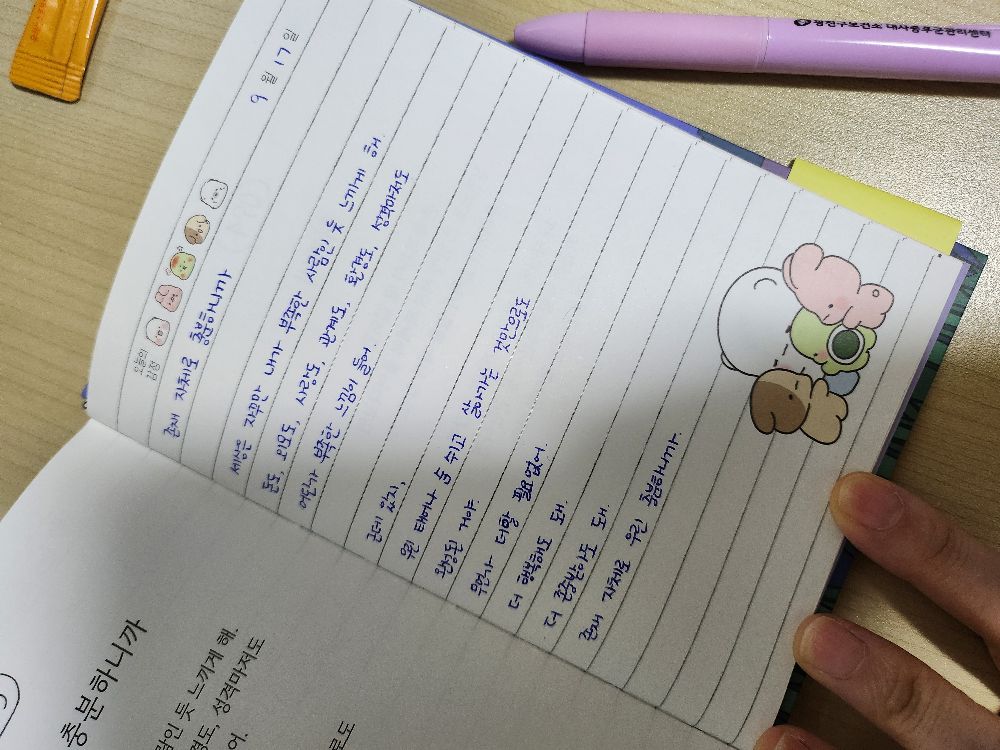 광진구보건소 대사증후군관리센터
6월 17일
오늘의 감정
존재 자체로 충분하니까
세상은 자꾸만 내가 부족한 사람인 듯 느끼게 해
돈도, 외모도, 사랑도, 관계도, 환경도, 성격마저도
어딘가 부족한 느낌이 들어.
근데 있지,
우린 태어나 숨 쉬고 살아가는 것만으로도
완성된 거야.
무언가 더할 필요없어.
더 행복해도 돼.
더 존중받아도 돼.
존재 자체로 우린 충분하니까.
충분하니까
람인 듯 느끼게 해.
경도, 성격마저도
어.
로도